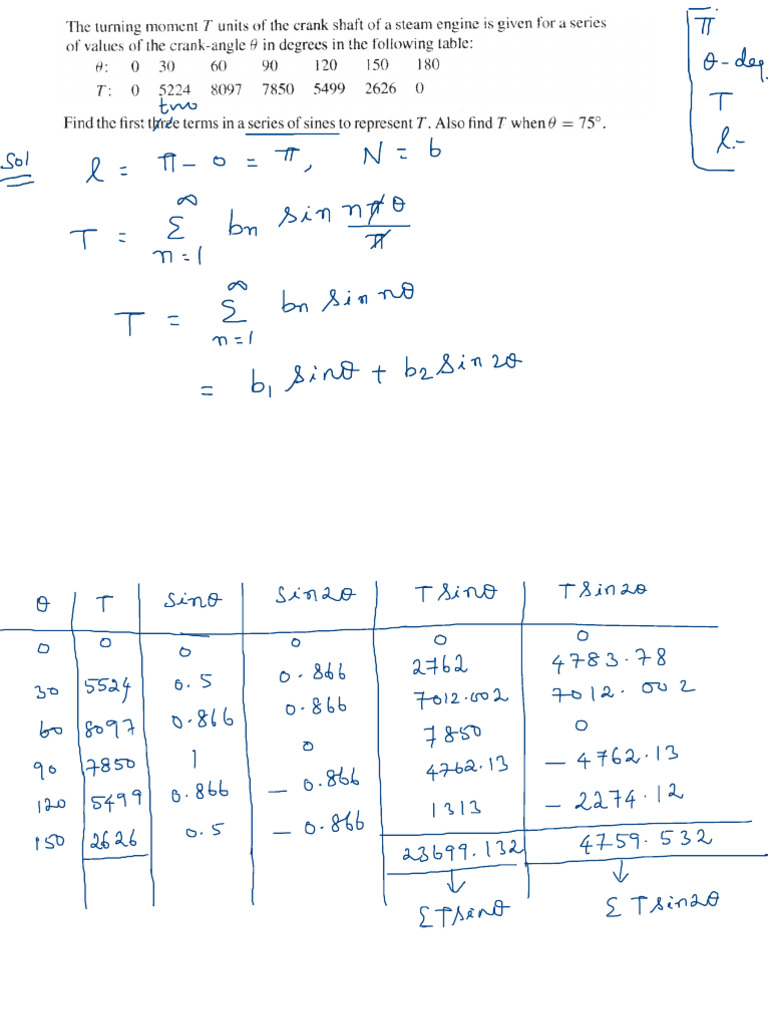 The turning moment T units of the crank shaft of a steam engine is given for a series
of values of the crank-angle θ in degrees in the following table:
θ: 0 30 60 90 120 150 180
T: 0 5224 8097 7850 5499 2626 0
two
Find the first three terms in a series of sines to represent T. Also find T when θ = 75°.
π
θ - deg.
T
l -
Sol
l = π - 0 = π, N = 6
T = ∞ Σ n=1 bn sin nπθ/π
T = ∞ Σ n=1 bn sin nθ
= b1 sinθ + b2 sin 2θ
θ T sinθ sin2θ T sinθ T sin2θ
0 0 0 0 0 0
30 5524 0.5 0.866 2762 4783.78
60 8097 0.866 0.866 7012.002 7012.002
90 7850 1 0 7850 0
120 5499 0.866 - 0.866 4762.13 - 4762.13
150 2626 0.5 - 0.866 1313 - 2274.12
23699.132 4759.532
↓ ↓
ΣTsinθ Σ T sin2θ